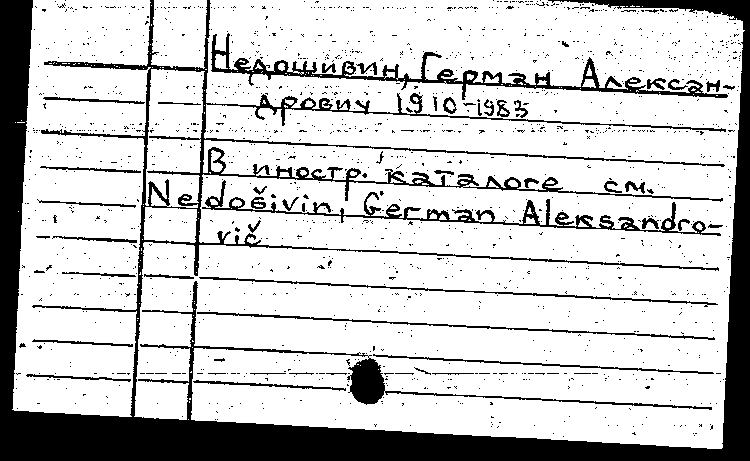 Недошивин, Герман Алексан-
дрович 1910-1983
В иностр. каталоге см.
Nedošivin, German Aleksandro-
vič